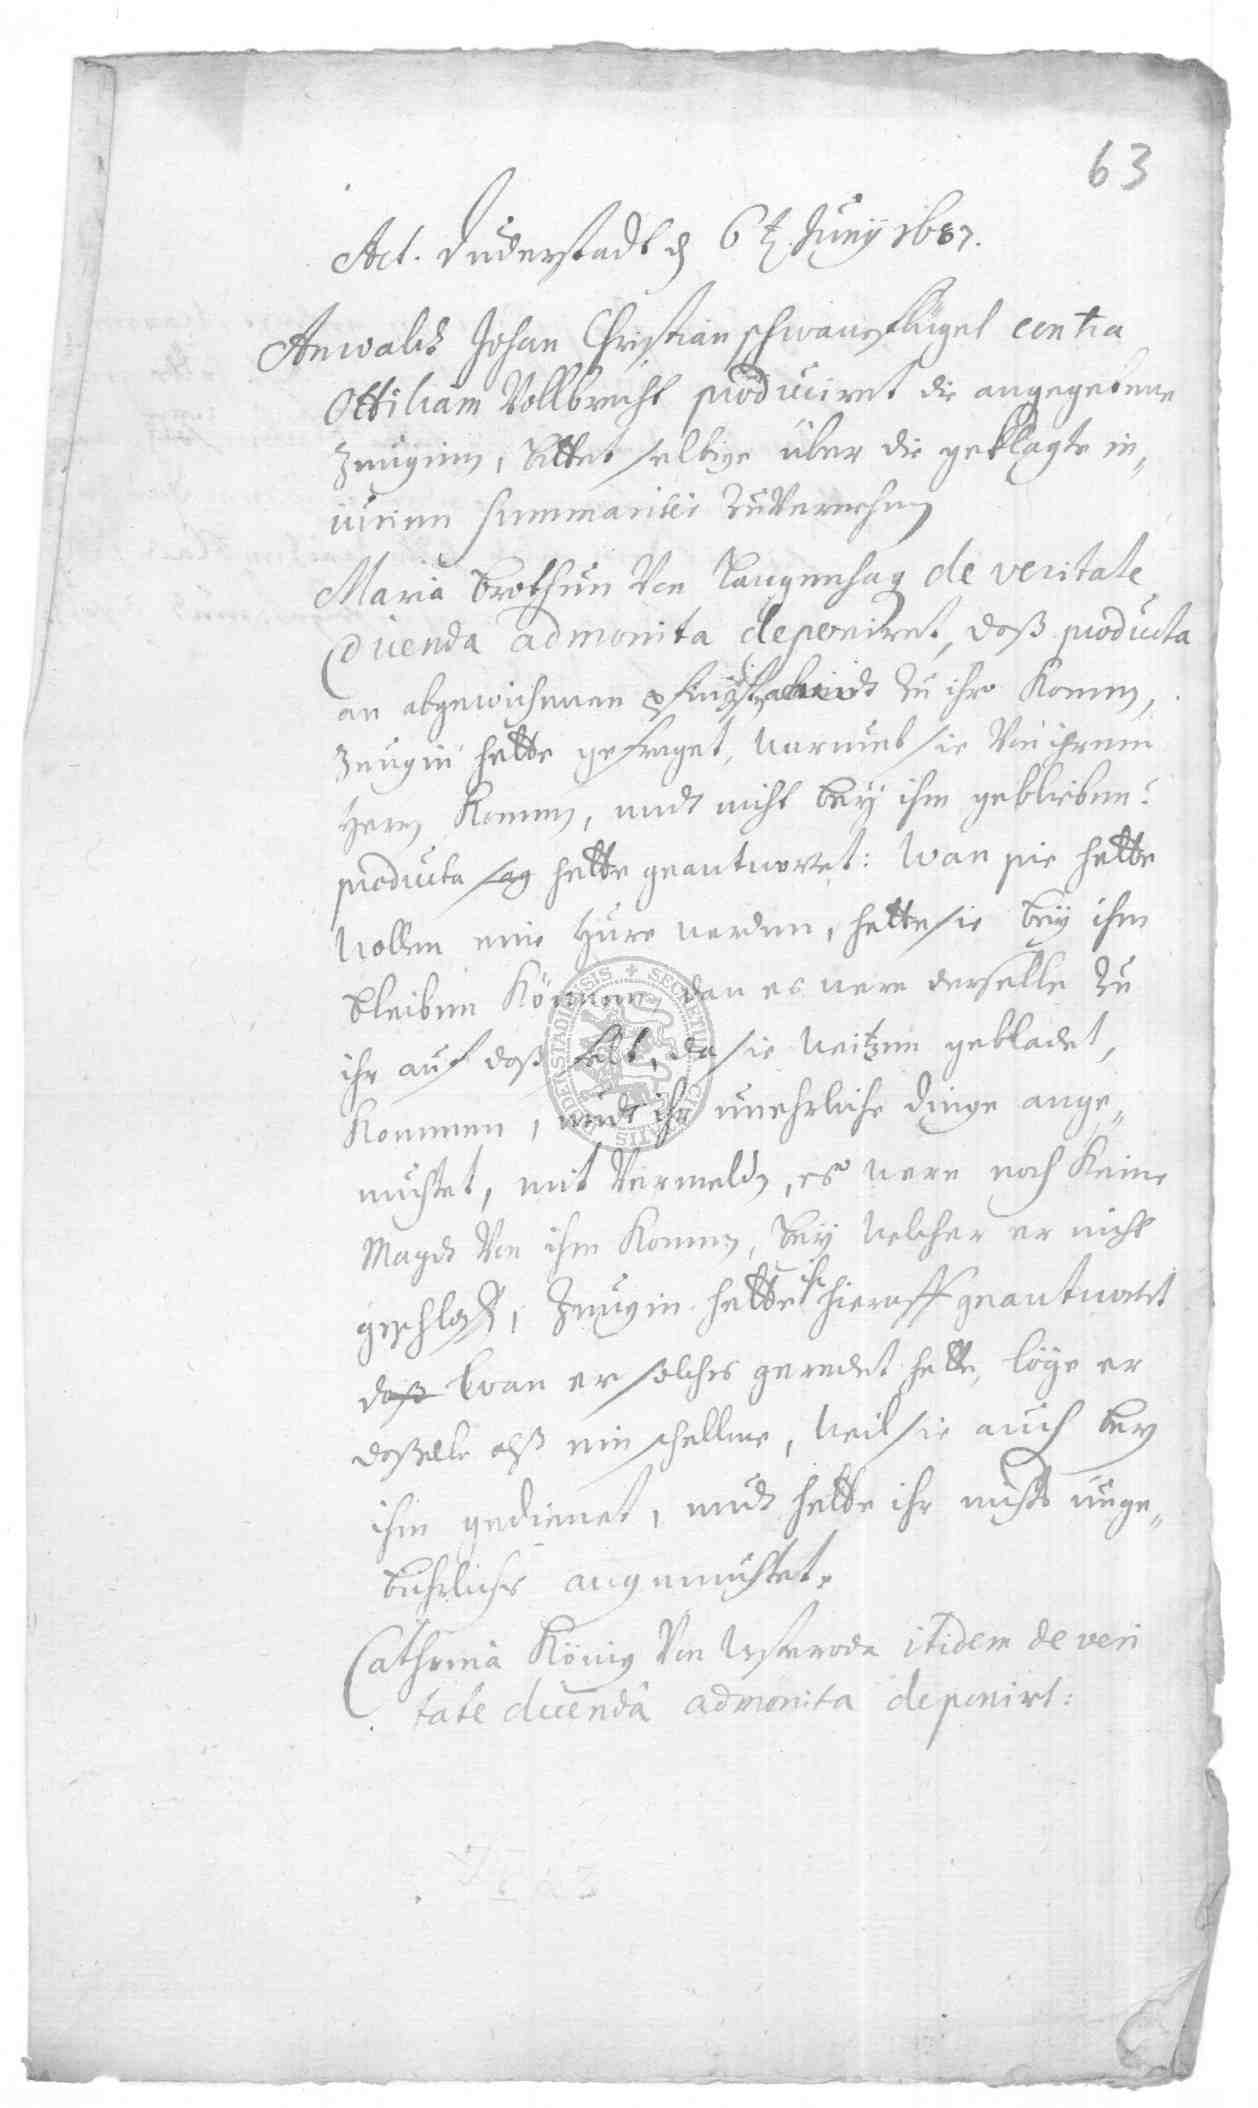 63
Act. Duderstadt d 6t Juny 1687.
Anwaldt Johan Christian schwanflügel contra
Ottiliam Vollbrecht produciret die angegebene
Zeuginn, bittet selbige über die geklagte in„
iurien summariter zu Vernehm
Maria Brothun Von Langenhag de veritate
dicenda admonita deponiret, daß producta
an abgewichenen pfingst zu ihr komm,
Zeugin hette gefraget, warumb sie Von ihrem
Herrn komm, undt nicht bey ihm geblieben?
producta sag hette geantwortet: Wan sie hette
wollen eine Hure werden, hette sie bey ihm
bleiben können dan es were derselbe zu
ihr auf daß felt, da sie weitzen gekladet,
kommen, undt ihr unehrliche dinge ange„
muhtet, mit Vermelden, es were noch keine
Magdt Von ihm komm, bey welcher er nicht
geschlaffen, Zeugin hette ihr hierauff geantwortet
daß wan er solches geredet hette, löge er
daßelbe alß ein schellme, weil sie auch bey
ihm gedienet, undt hette ihr nichts unge„
buhrliches angemuhtet.
Cathrina König Von Westerode itidem de veri
tate dicendâ admonita deponirt:
SECRETUM CIVITATIS DUDERSTADIENSIS